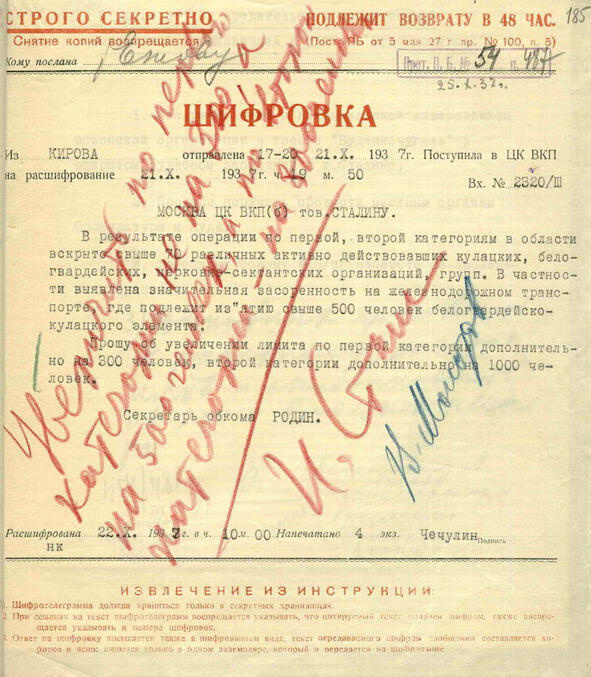 185
СТРОГО СЕКРЕТНО
ПОДЛЕЖИТ ВОЗВРАТУ В 48 ЧАС.
Снятие копий воспрещается
(Пост. ПБ от 5 мая 27 г. пр. № 100, п. 5)
Кому послана Ежову
Прот. П. Б. № 54 п. 487
25.X.37г.
ШИФРОВКА
Из КИРОВА отправлена 17-20 21.X. 1937г. Поступила в ЦК ВКП
на расшифрование 21.X. 1937г. ч. 19 м. 50
Вх. № 2320/Ш
МОСКВА ЦК ВКП(б) тов. СТАЛИНУ.
В результате операции по первой, второй категориям в области
вскрыто свыше различных активно действовавших кулацких, бело-
гвардейских, церковно-сектантских организаций, групп. В частности
выявлена значительная засоренность на железнодорожном транс-
порте, где подлежит из"ятию свыше 500 человек белогвардейско-
кулацкого элемента.
Прошу об увеличении лимита по первой категории дополнитель-
но на 300 человек, второй категории дополнительно на 1000 че-
ловек.
Секретарь обкома РОДИН.
Увеличить по первой
категории не на 300, а
на 500 человек, а по второй
категории – на 800 человек
И. Сталин
В. Молотов
Расшифрована 22.X. 1937 г. в ч. 10 м. 00 Напечатано 4 экз. Чечулин Подпись
нк
ИЗВЛЕЧЕНИЕ ИЗ ИНСТРУКЦИИ:
1. Шифротелеграмма должна храниться только в секретных хранилищах.
2. При ссылках на текст шифротелеграмм воспрещается указывать, что цитируемый текст получен шифром, также воспре-
щается указывать и номера шифровок.
3. Ответ на шифровку посылается также в шифрованном виде, текст передаваемого шифром сообщения составляется ко-
ротко и ясно; пишется только в одном экземпляре, который и передается на шифрование.